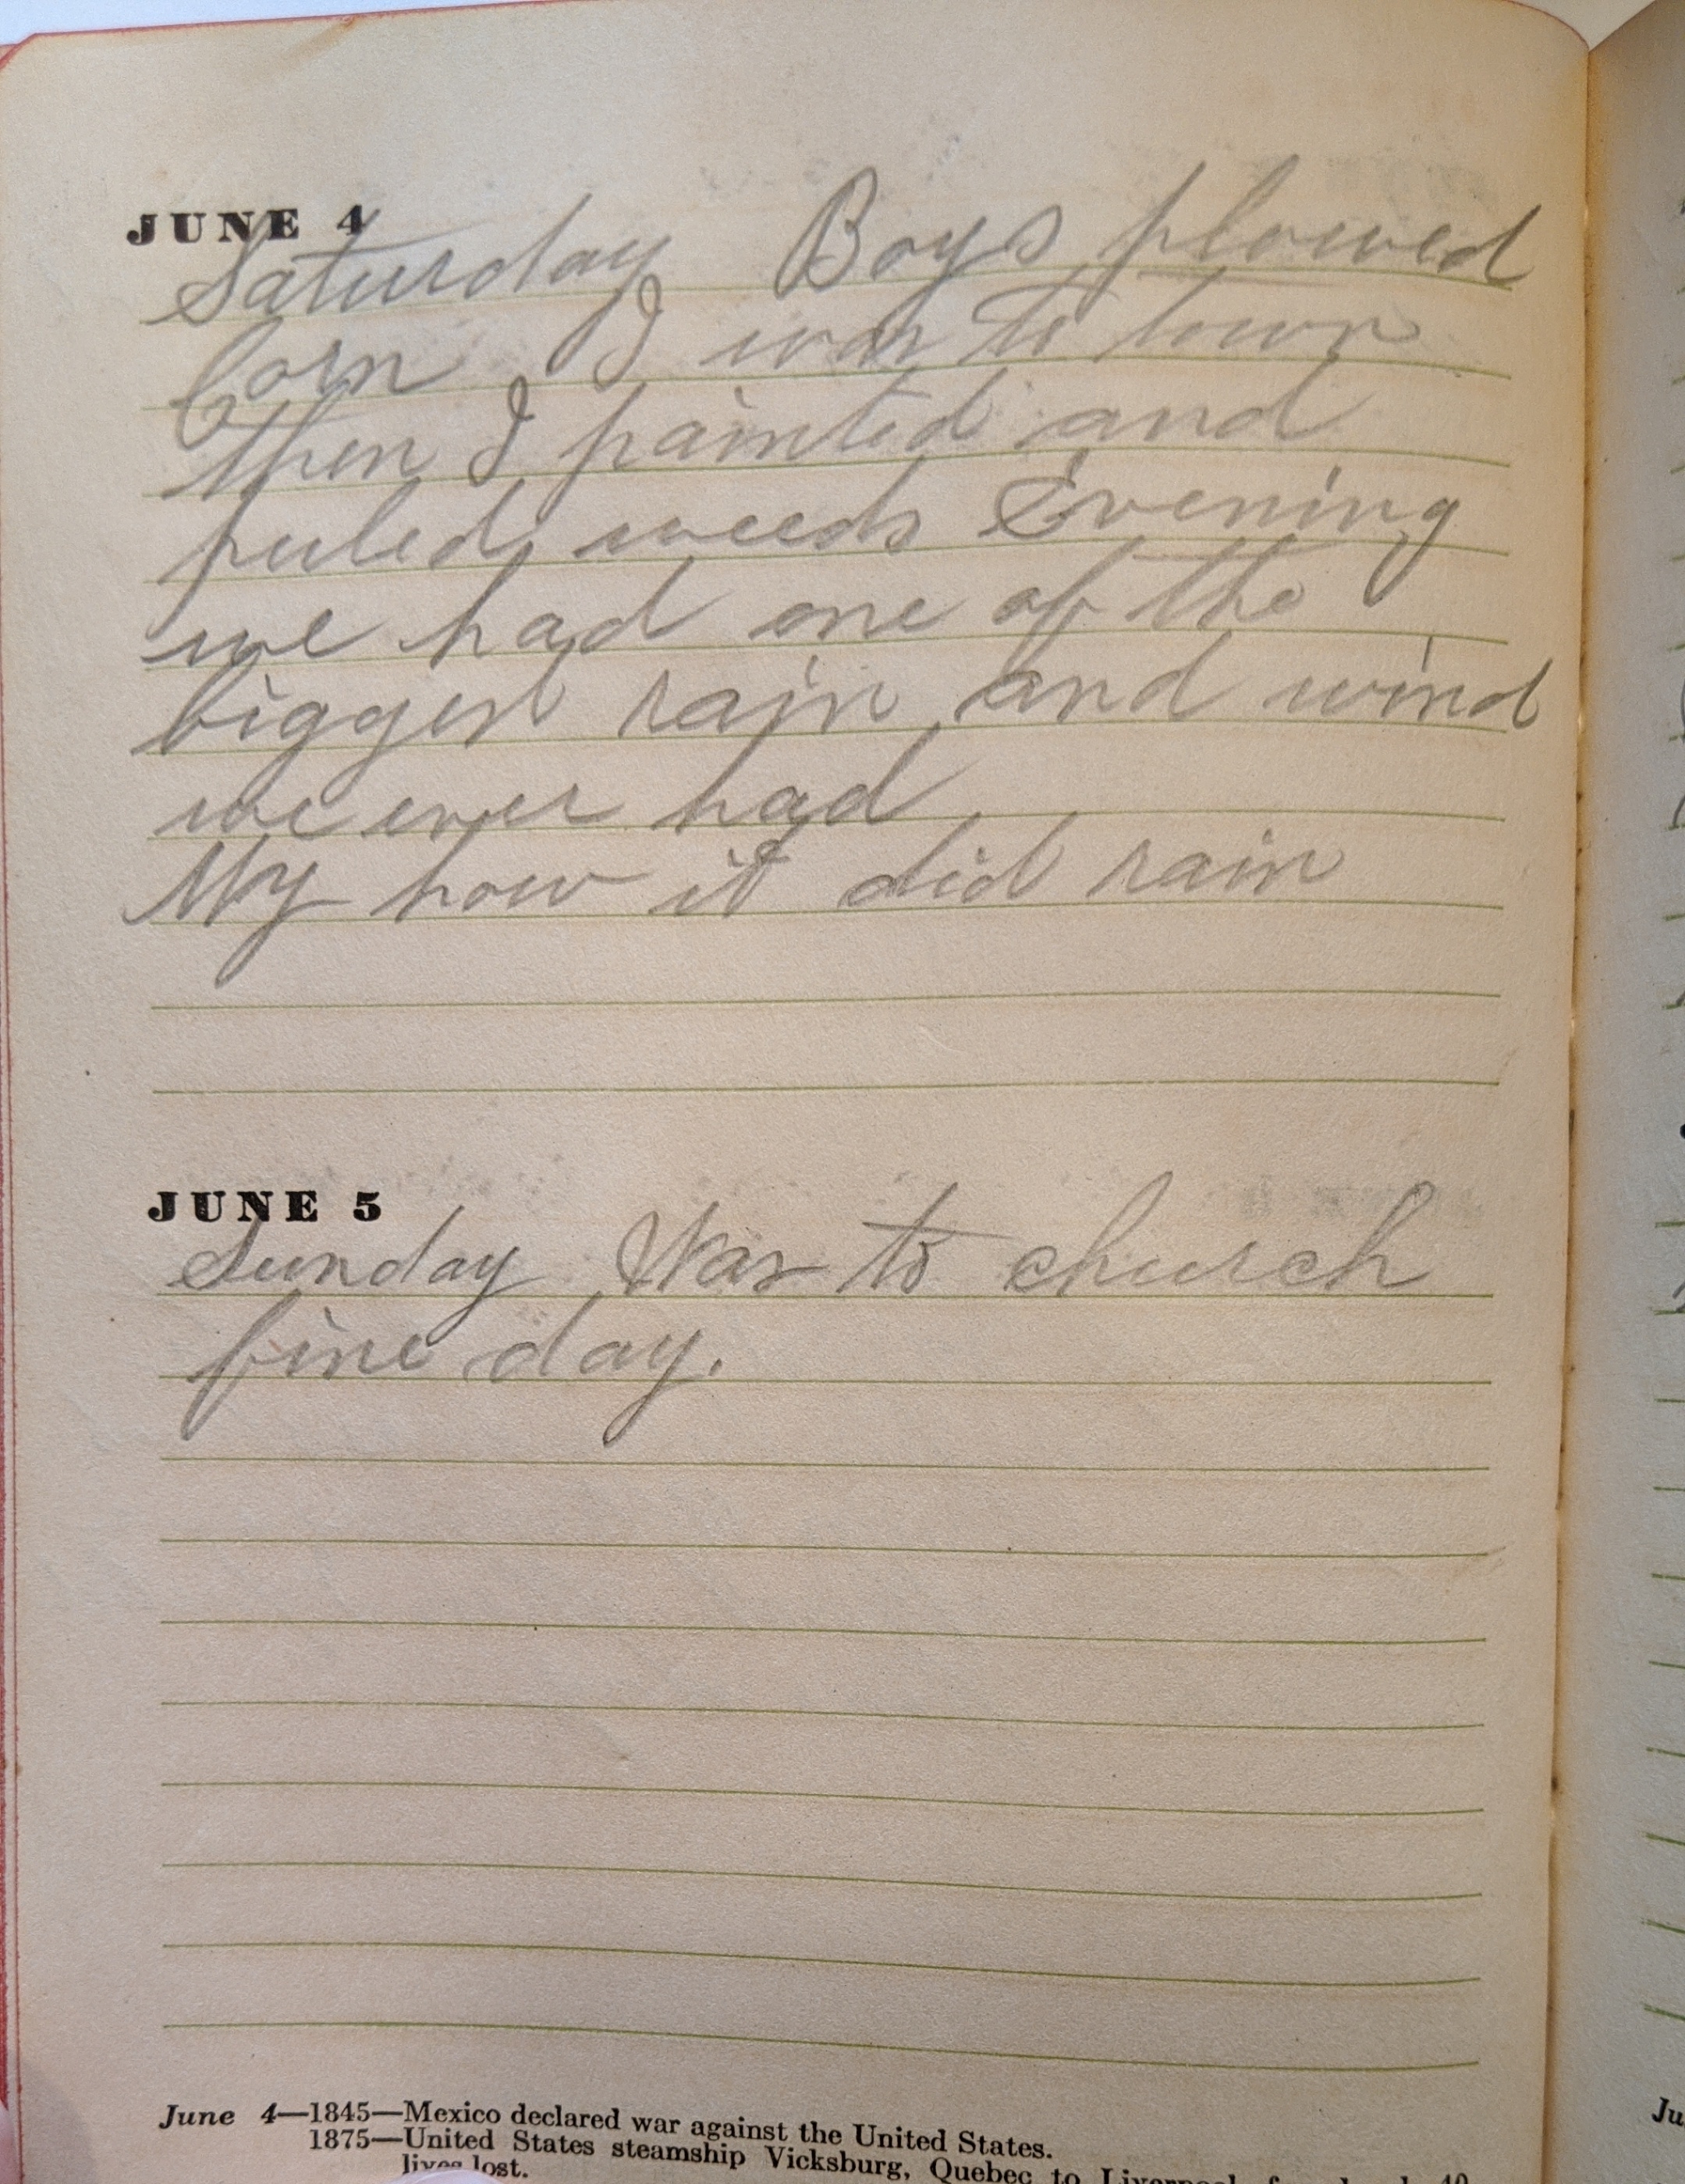 JUNE 4
Saturday Boys plowed
Corn I was to town
then I painted and
puled weeds Evening
we had one of the
biggest rain and wind
we ever had
My how it did rain
JUNE 5
Sunday Was to church
fine day.
June 4—1845—Mexico declared war against the United States.
1875—United States steamship Vicksburg, Quebec to Liverpool, 40
lives lost.
Ju